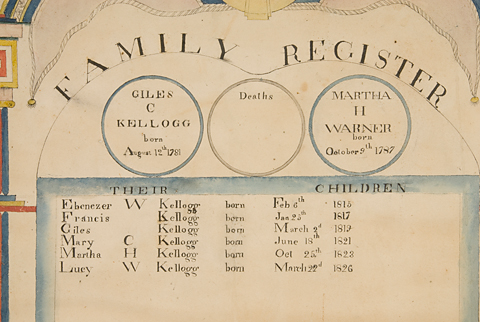 FAMILY REGISTER
GILES
C
KELLOGG
born
August 12th 1781
Deaths
MARTHA
H
WARNER
born
October 9th 1787
THEIR CHILDREN
Ebenezer W Kellogg born Feb 6th 1815
Francis Kellogg born Jan 25th 1817
Giles Kellogg born March 3d 1819
Mary C Kellogg born June 18th 1821
Martha H Kellogg born Oct 25th 1823
Lucy W Kellogg born March 22d 1826